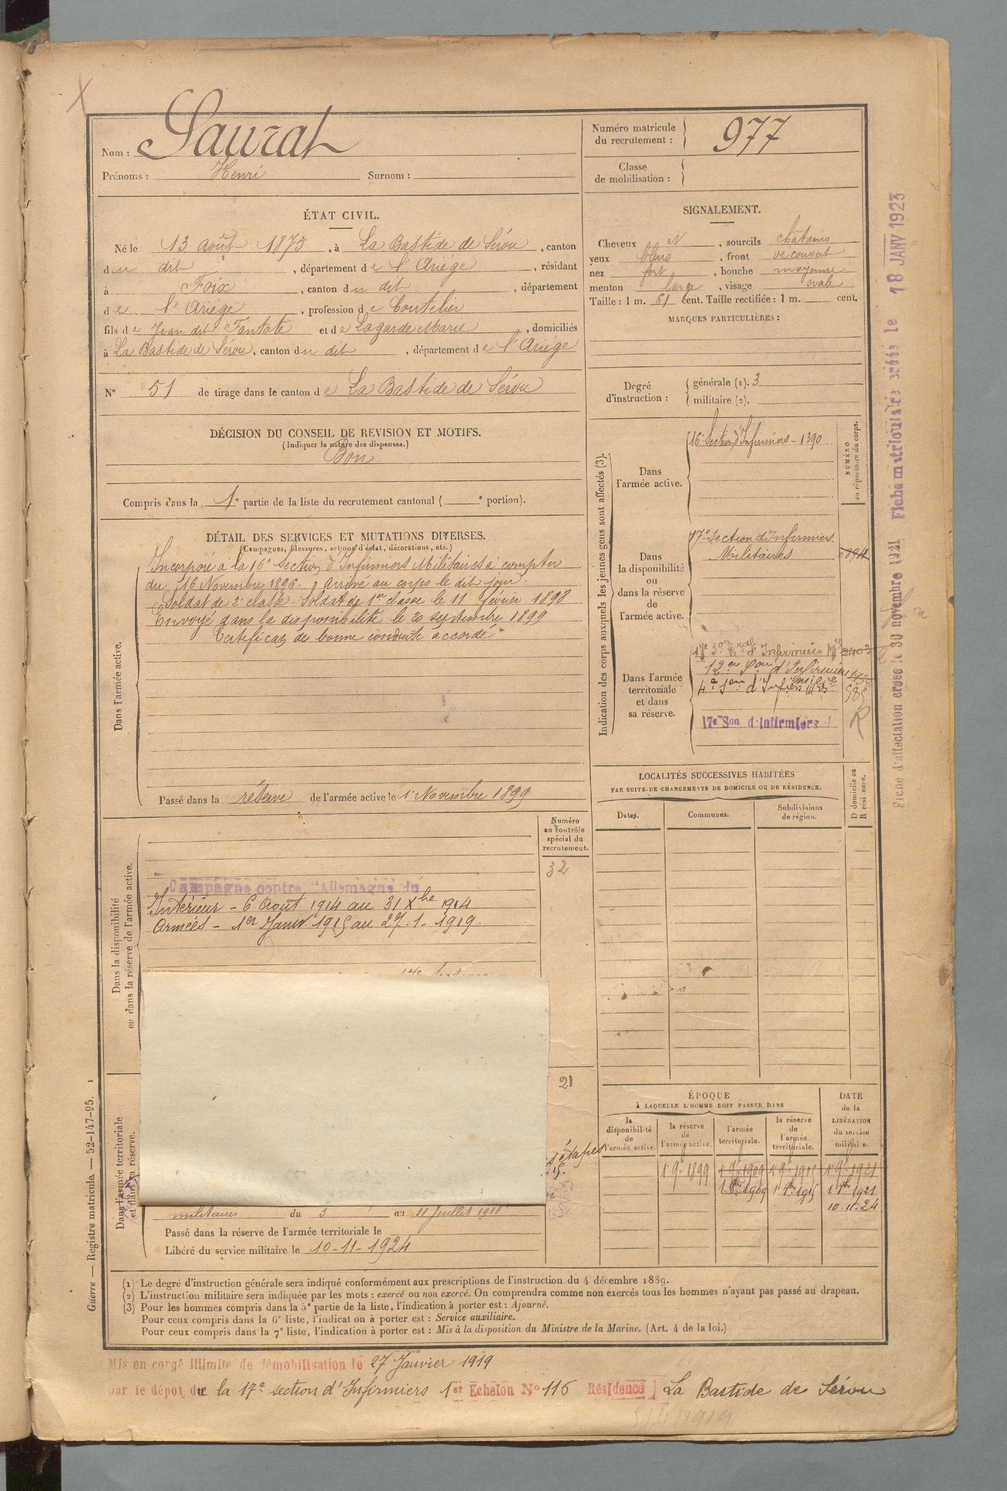 Nom : Saurat
Prénoms : Henri Surnom :
Numéro matricule du recrutement : 977
Classe de mobilisation :
ÉTAT CIVIL.
Né le 13 août 1875, à La Bastide de Sérou, canton
du dit, département de l'Ariège, résidant
à Foix, canton du dit, département
de l'Ariège, profession de Coutelier
fils de Jean dit Tantate et de Lagarde Marie, domiciliés
à La Bastide de Sérou, canton du dit, département de l'Ariège
N° 51 de tirage dans le canton de La Bastide de Sérou
DÉCISION DU CONSEIL DE REVISION ET MOTIFS.
(Indiquer la nature des dispenses.)
Bon
Compris dans la 1e partie de la liste du recrutement cantonal ( e portion).
SIGNALEMENT.
Cheveux N, sourcils châtains
yeux bleus, front découvert
nez fort, bouche moyenne
menton large, visage ovale
Taille : 1 m. 61 cent. Taille rectifiée : 1 m. cent.
MARQUES PARTICULIÈRES :
Degré d'instruction :
générale (1). 3
militaire (2).
DÉTAIL DES SERVICES ET MUTATIONS DIVERSES.
(Campagnes, blessures, actions d'éclat, décorations, etc.)
Dans l'armée active.
Incorporé à la 16e Section d'Infirmiers Militaires à compter
du 16 Novembre 1896. Arrivé au corps le dit jour.
Soldat de 2e classe. Soldat de 1re classe le 11 février 1898
Envoyé dans la disponibilité le 20 septembre 1899
Certificat de bonne conduite accordé
Passé dans la réserve de l'armée active le 1 Novembre 1899
Indication des corps auxquels les jeunes gens sont affectés (3).
NUMÉRO au répertoire du corps.
Dans l'armée active.
16e Section d'Infirmiers - 1390
Dans la disponibilité ou dans la réserve de l'armée active.
17e Section d'Infirmiers
Militaires
Dans l'armée territoriale et dans sa réserve.
17e Son d'Infirmiers
R
LOCALITÉS SUCCESSIVES HABITÉES
PAR SUITE DE CHANGEMENTS DE DOMICILE OU DE RÉSIDENCE.
Dates.
Communes.
Subdivisions de région.
D domicile ou R résidence.
Dans la disponibilité ou dans la réserve de l'armée active.
Numéro au contrôle spécial du recrutement.
32
Campagne contre l'Allemagne du
Intérieur - 6 Août 1914 au 31 Xbre 1914
Armées - 1er Janvr 1915 au 27.1.1919.
21
Dans l'armée territoriale et dans sa réserve.
militaire du 3 au 11 Juillet
Passé dans la réserve de l'armée territoriale le
Libéré du service militaire le 10-11-1924
ÉPOQUE
À LAQUELLE L'HOMME DOIT PASSER DANS
la disponibilité de l'armée active.
la réserve de l'armée active.
l'armée territoriale.
la réserve de l'armée territoriale.
DATE de la LIBÉRATION du service militaire.
1.9.1899 1.9.1909 1.9.1915 1.9.1921
10.11.24
(1) Le degré d'instruction générale sera indiqué conformément aux prescriptions de l'instruction du 4 décembre 1889.
(2) L'instruction militaire sera indiquée par les mots : exercé ou non exercé. On comprendra comme non exercés tous les hommes n'ayant pas passé au drapeau.
(3) Pour les hommes compris dans la 5e partie de la liste, l'indication à porter est : Ajourné.
Pour ceux compris dans la 6e liste, l'indication à porter est : Service auxiliaire.
Pour ceux compris dans la 7e liste, l'indication à porter est : Mis à la disposition du Ministre de la Marine. (Art. 4 de la loi.)
Mis en congé illimité de démobilisation le 27 Janvier 1919
par le dépôt de la 17e section d'Infirmiers 1er Echelon N° 116 Résidence La Bastide de Sérou
Guerre — Registre matricule. — 52-147-95.
Fiche d'affectation créée le 30 novembre 1921 Fiche matriculaire créée le 18 JANV 1923